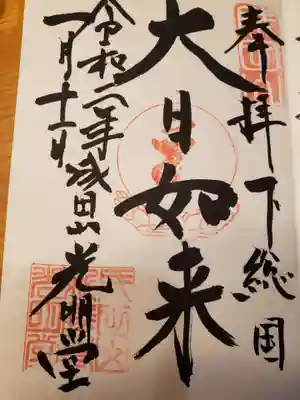 奉拝 下総国
大日如来
令和二年 成田山 光明堂
一月十一日